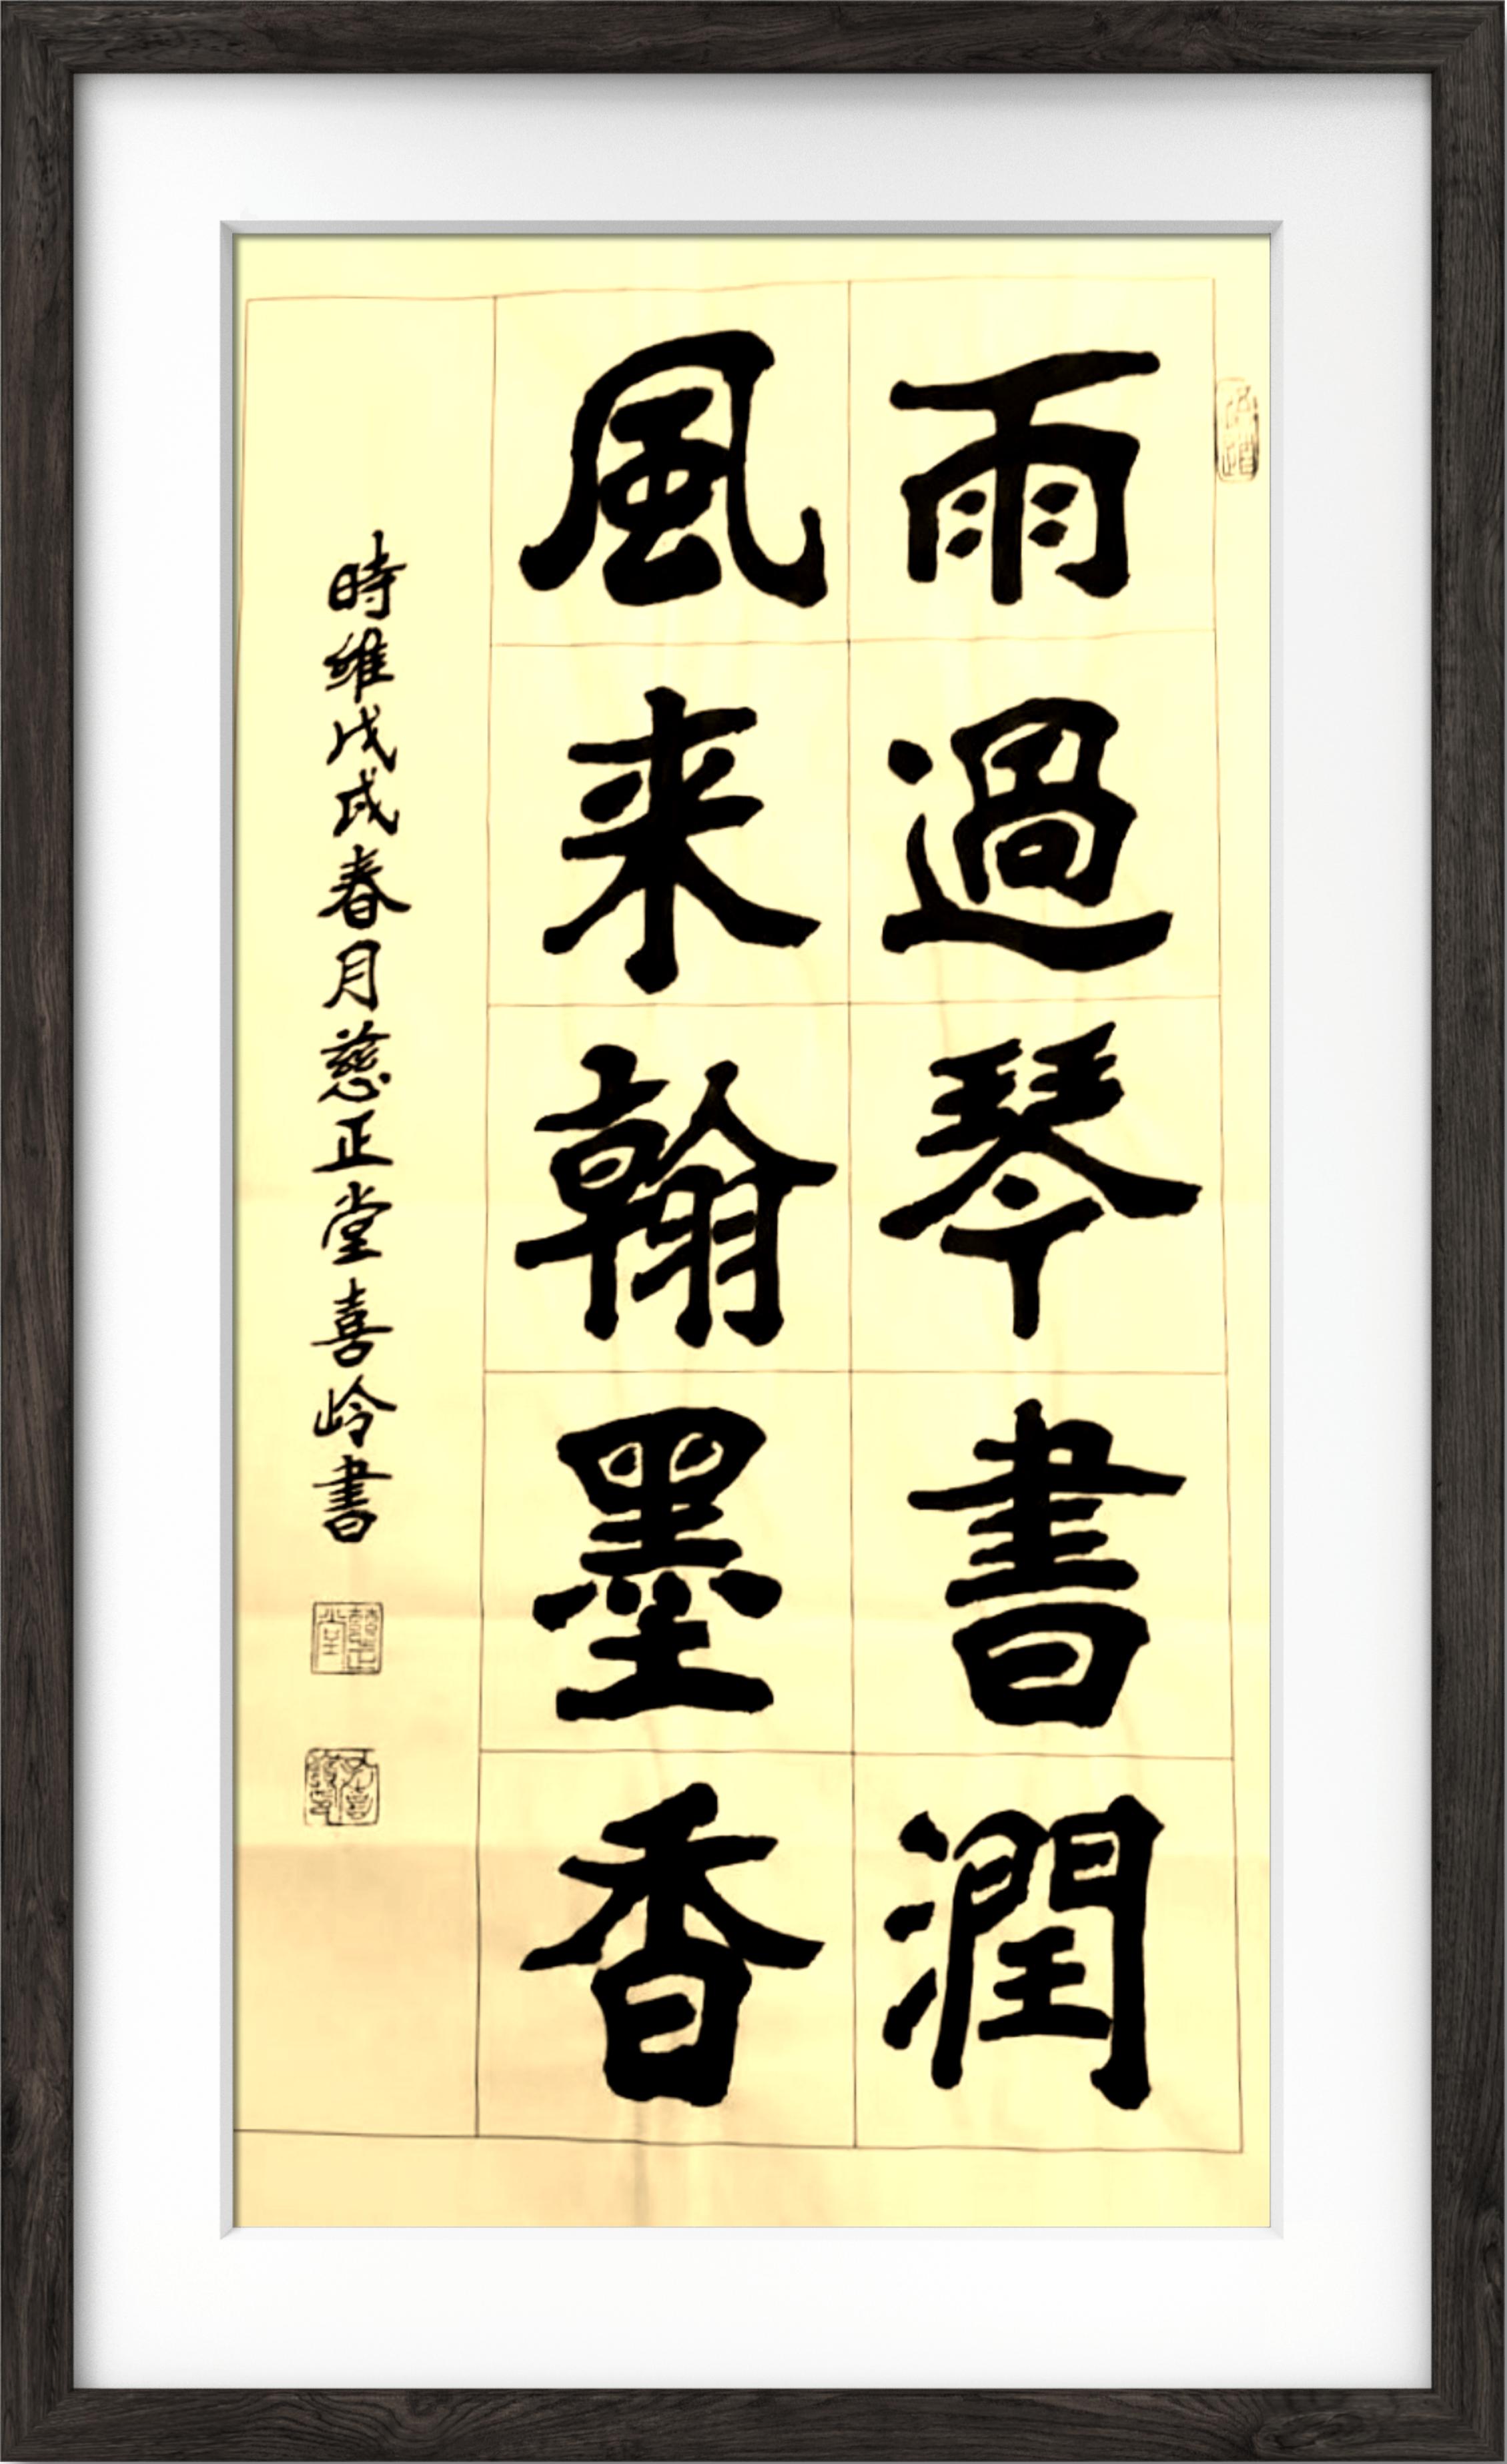 雨過琴書潤
風来翰墨香
時維戊戌春月慈正堂喜岭書
慈正堂